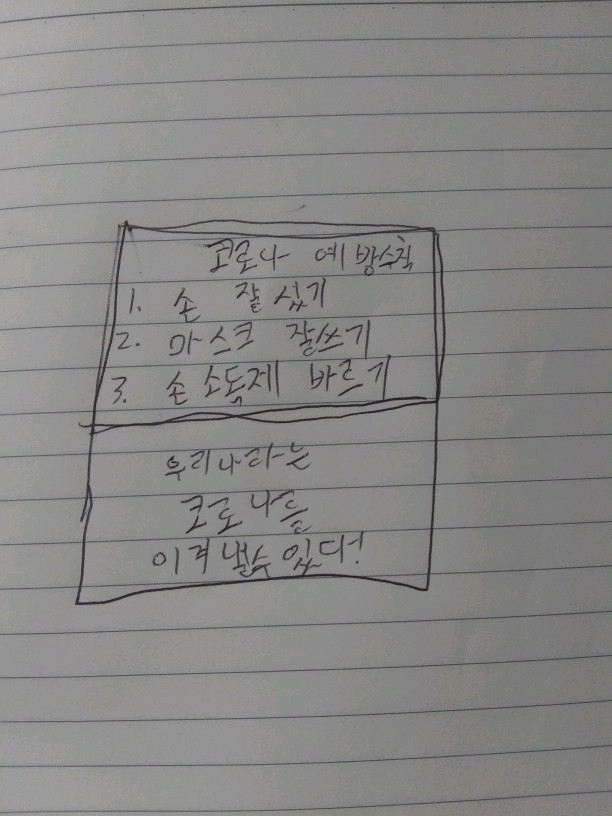 코로나 예방수칙
1. 손 잘 씻기
2. 마스크 잘쓰기
3. 손 소독제 바르기
우리나라는
코로나를
이겨낼수 있다!